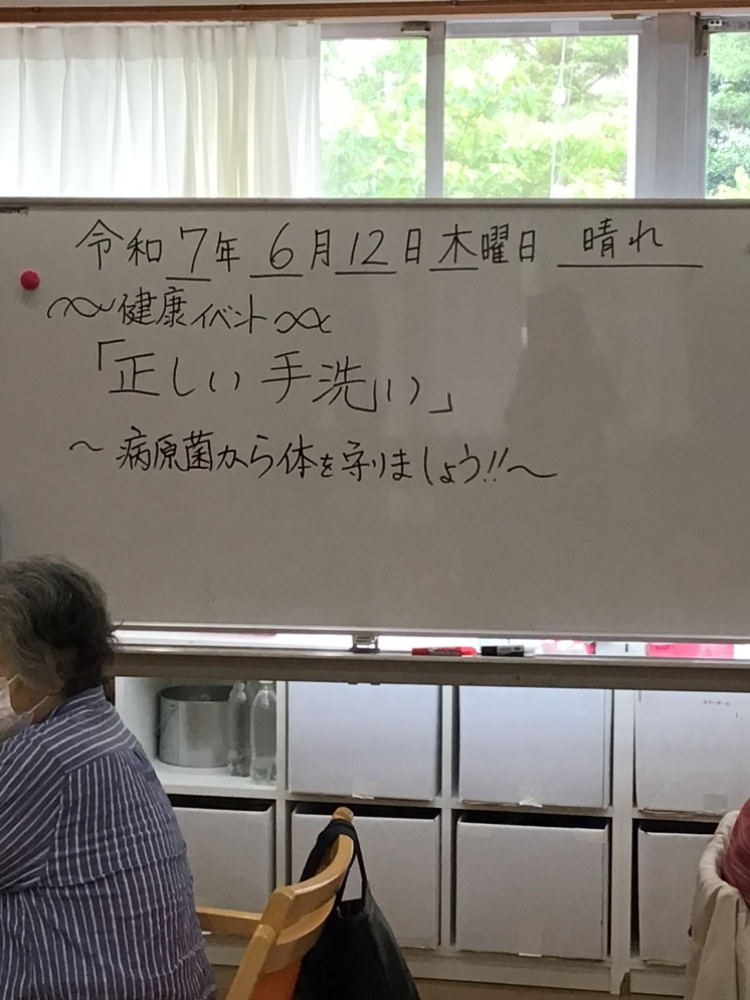 令和7年 6月12日 木曜日 晴れ
健康イベント
「正しい手洗い」
～病原菌から体を守りましょう!!～